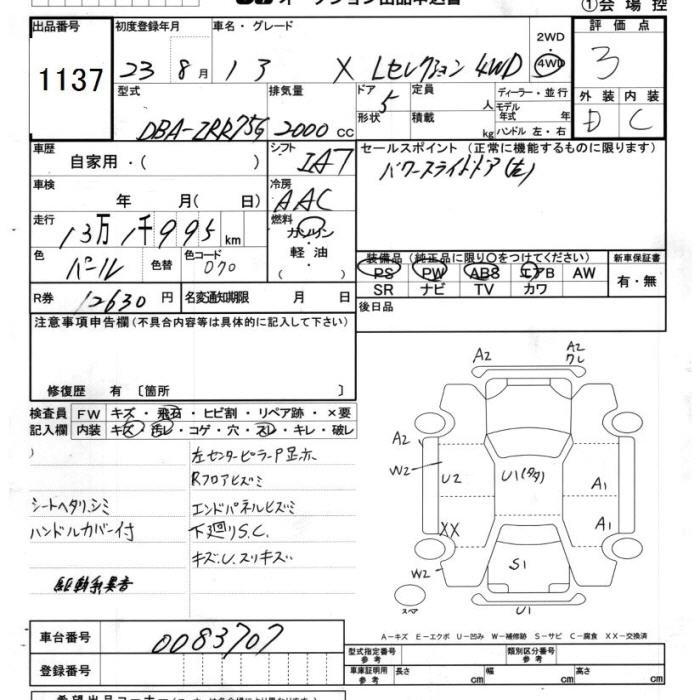 オークション出品申込書
①会場控
出品番号
1137
初度登録年月
23 8月
車名・グレード
13 X Lセレクション 4WD
2WD
・
4WD
評価点
3
型式
DBA-ZRR75G
排気量
2000 CC
ドア
5
形状
定員
人
積載
kg
ディーラー・並行
モデル
年式 年
ハンドル 左・右
外装 内装
D C
車歴
自家用・( )
シフト
IA7
セールスポイント (正常に機能するものに限ります)
パワースライドドア(左)
車検
年 月( 日)
冷房
AAC
走行
13万1千995km
燃料
ガソリン
軽油
( )
色
パール
色替
色コード
070
装備品 (純正品に限り○をつけてください)
PS PW ABS エアB AW
SR ナビ TV カワ
新車保証書
有・無
R券 12630円
名変通知期限 月 日
後日品
注意事項申告欄(不具合内容等は具体的に記入して下さい)
修復歴 有〔箇所 〕
検査員 FW キズ・飛石・ヒビ割・リペア跡・×要
記入欄 内装 キズ・汚レ・コゲ・穴・スレ・キレ・破レ
左センターピラーP歪ホ
Rフロアヒズミ
シートヘタリ.シミ
エンドパネルヒズミ
ハンドルカバー付
下廻りS.C.
キズ.U.スリキズ
駆動系異音
A2
A2
ワレ
A2
W2
U2
U1(タタ)
A1
A1
XX
W2
S1
U1
スペア
A-キズ E-エクボ U-凹み W-補修跡 S-サビ C-腐食 XX-交換済
車台番号
0083707
登録番号
型式指定番号
参考
類別区分番号
参考
車庫証明用
参考
長さ cm 幅 cm 高さ cm